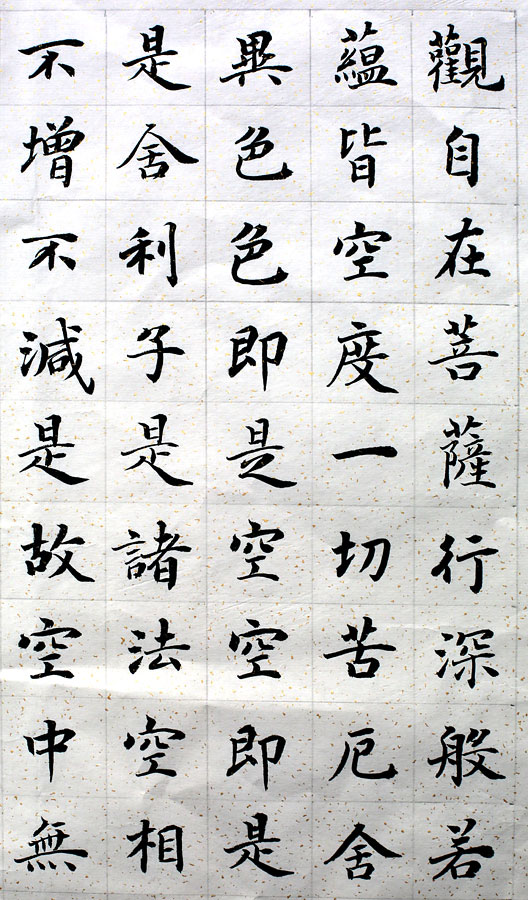 觀自在菩薩行深般若
蘊皆空度一切苦厄舍
異色色即是空空即是
是舍利子是諸法空相
不增不減是故空中無